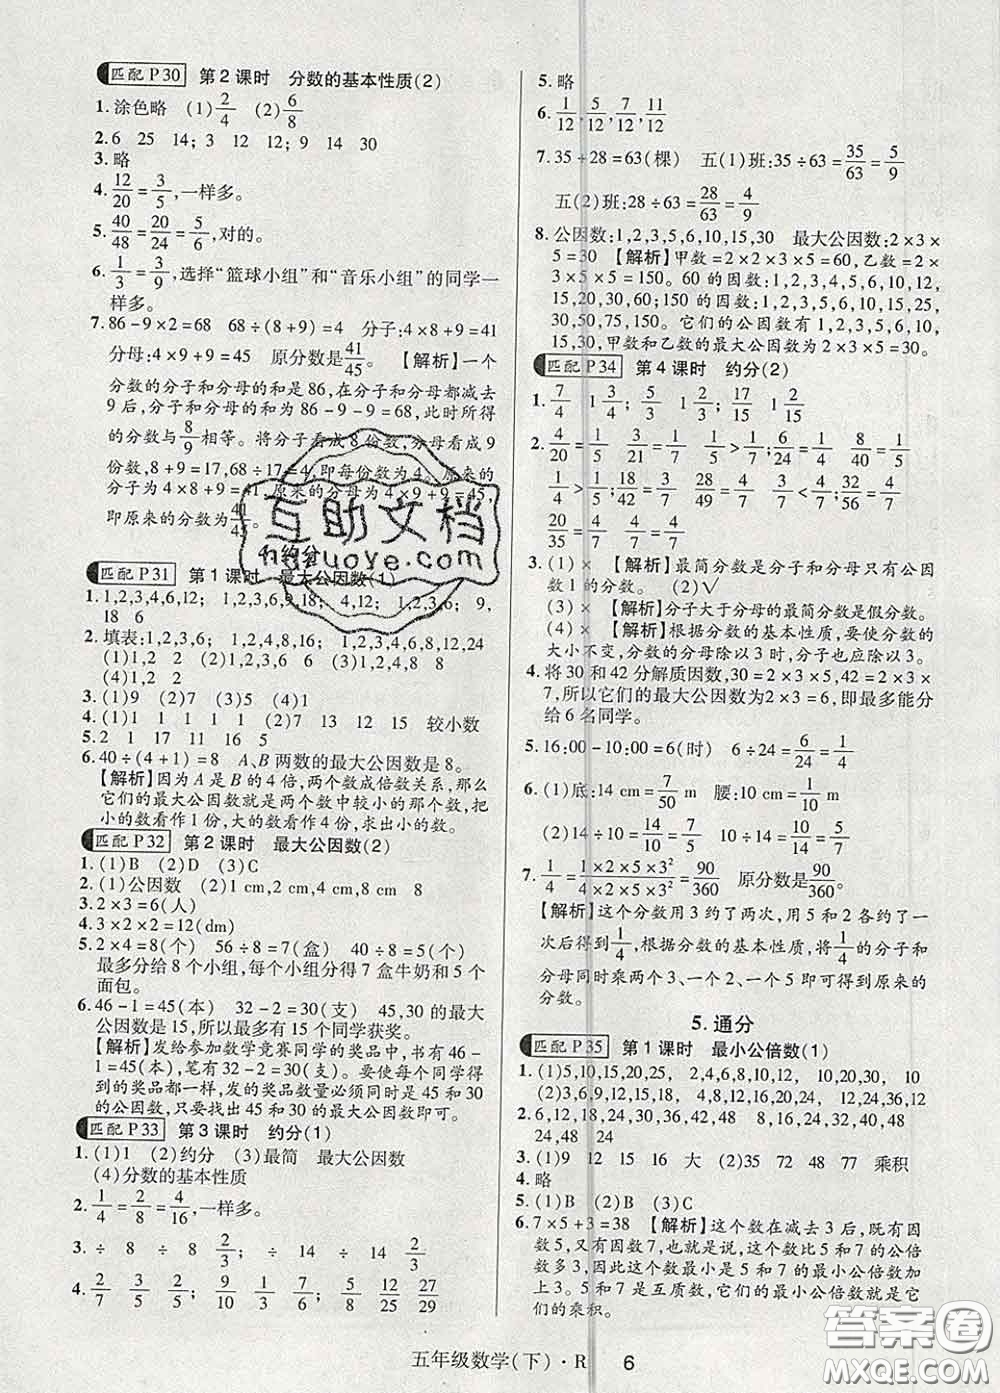 匹配 P30 第2课时 分数的基本性质(2)
1. 涂色略 (1)2/4 (2)6/8
2. 6 25 14; 3 12 12; 9 14 30
3. 略
4. 12/20=3/5,一样多。
5. 40/48=20/24=5/6,对的。
6. 1/3=3/9,选择“篮球小组”和“音乐小组”的同学一
样多。
7. 86-9×2=68 68÷(8+9)=4 分子:4×8+9=41
分母:4×9+9=45 原分数是41/45。 【解析】一个
分数的分子和分母的和是86,在分子和分母都减去
9后,分子和分母的和为86-9-9=68,此时所得
的分数与8/9相等。将分子看成8份数,分母看成9
份数,8+9=17,68÷17=4,即每份数为4。原来的
分子为4×8+9=41,原来的分母为4×9+9=45,
即原来的分数为41/45。
4.约分
匹配 P31 第1课时 最大公因数(1)
1. 1,2,3,4,6,12; 1,2,3,6,9,18; 4,12; 1,2,3,6; 9,
18 6
2. 填表:1,2,3,6; 1,2,4,8,16; 1,2,3,4,6,8,12,24
(1)1,2 2 (2)1,2,3,6 6 (3)1,2,4,8 8
(4)1,2 2
3. (1)√ (2)× (3)√
4. (1)1 1 1 1 (2)7 13 12 15 较小数
5. 2 1 17 11 16 5
6. 40÷(4+1)=8 A、B两数的最大公因数是8。
【解析】因为A是B的4倍,两个数成倍数关系,那么
它们的最大公因数就是两个数中较小的那个数,把
小的数看作1份,大的数看作4份,求出小的数。
匹配 P32 第2课时 最大公因数(2)
1. (1)B (2)D (3)C
2. (1)公因数 (2)1 cm,2 cm,4 cm,8 cm 8
3. 2×3=6(人)
4. 3×2×2=12(dm)
5. 2×4=8(个) 56÷8=7(盒) 40÷8=5(个)
最多分给8个小组,每个小组分得7盒牛奶和5个
面包。
6. 46-1=45(本) 32-2=30(支) 45,30的最大
公因数是15,所以最多有15个同学获奖。
【解析】发给参加数学竞赛同学的奖品中书有46-
1=45本,笔应有32-2=30支。要使每个同学得
到的奖品都一样,发的奖品数量必须既是45和30
的公因数,只要找出45和30的最大公因数即可。
匹配 P33 第3课时 约分(1)
1. (1)1 (2)约分 (3)最简 最大公因数
(4)分数的基本性质
2. 1/4=2/8=4/16,一样多。
3. ÷ 8 ÷ 8 2/3; ÷ 14 ÷ 14 2/3
4. 2/7 3/5 2/3; 9/10 1/3 6/7; 12/25 27/29
5. 略
6. 1/12,5/12,7/12,11/12
7. 35+28=63(棵) 五(1)班:35÷63=35/63=5/9
五(2)班:28÷63=28/63=4/9
8. 公因数:1,2,3,5,6,10,15,30 最大公因数:2×3×
5=30 【解析】甲数=2×2×3×5=60,乙数=2×
3×5×5=150。60的因数:1,2,3,4,5,6,10,12,
15,20,30,60;150的因数:1,2,3,5,6,10,15,25,
30,50,75,150。它们的公因数有1,2,3,5,6,10,
15,30,甲数和乙数的最大公因数为2×3×5=30。
匹配 P34 第4课时 约分(2)
1. 7/4 1 3/4; 7/4 1 3/4; 17/15 1 2/15
2. 4/20=1/5 3/15=1/5; 1/7 1/7 1/7>1/7; 6/24=1/4 4/20=
1/5 1/4>1/5; 18/42=3/7 28/49=4/7 3/7<4/7; 32/56=4/7
20/35=4/7 4/7=4/7
3. (1)× 【解析】最简分数是分子和分母只有公因
数1的分数。 (2)√
(3)× 【解析】分子大于分母的最简分数是假分数。
(4)× 【解析】根据分数的基本性质,要使分数的
大小不变,分数的分母除以3时,分子也应除以3。
4. 将30和42分解质因数,30=2×3×5,42=2×3×
7,所以它们的最大公因数为2×3=6,即最多能分
给6名同学。
5. 16:00-10:00=6(时) 6÷24=6/24=1/4
6. (1)底:14 cm=7/50 m 腰:10 cm=1/10 m
(2)14÷10=14/10=7/5 10÷14=10/14=5/7
7. 1/4=1×2×5×3²/4×2×5×3²=90/360 原分数是90/360。
【解析】这个分数用3约了两次,用5和2各约了一
次后得到1/4,根据分数的基本性质,将1/4的分子和
分母同时乘两个3、一个2、一个5即可得到原来的
分数。
5.通分
匹配 P35 第1课时 最小公倍数(1)
1. (1)5,10,15,20,25 2,4,6,8,10,12,20,30 10
(2)3,6,9,12,15,18 4,8,16,20 12,24,36 12
2. 6,12,18,24,30,36,42,48 8,16,24,32,40,48
24,48 24
3. (1)9 12 15 16 大 (2)35 72 48 77 乘积
4. 略
5. (1)B (2)B (3)C
6. 7×5+3=38 【解析】这个数在减去3后,既有因
数5,又有因数7,也就是说,这个数比5和7的公倍
数多3,所以这个数最小是5和7的最小公倍数
加上3。5和7是互质数,它们的最小公倍数就是它
们的乘积。
五年级数学(下)·R 6
互助文档
huzhuwendang.huoye.com
答案圈
MXQE.COM